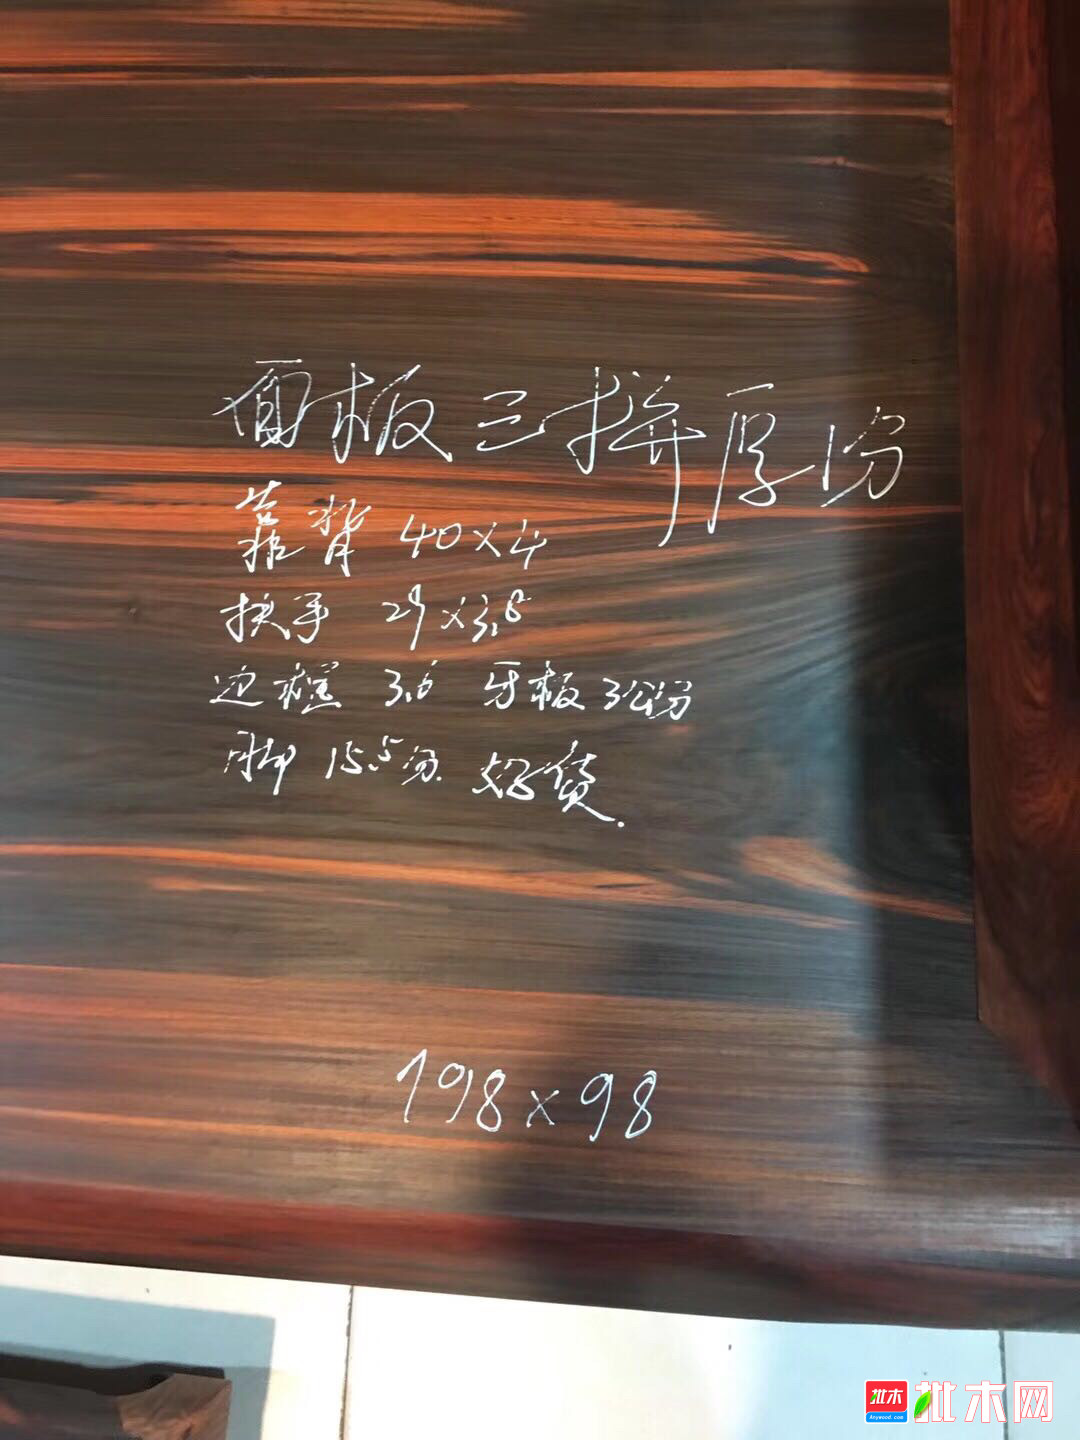 面板三拼厚1公分
靠背 40×4
扶手 29×3.8
边框 3.6 牙板3公分
脚 15.5分 好货.
198×98
批木 批木网
Anywood.com